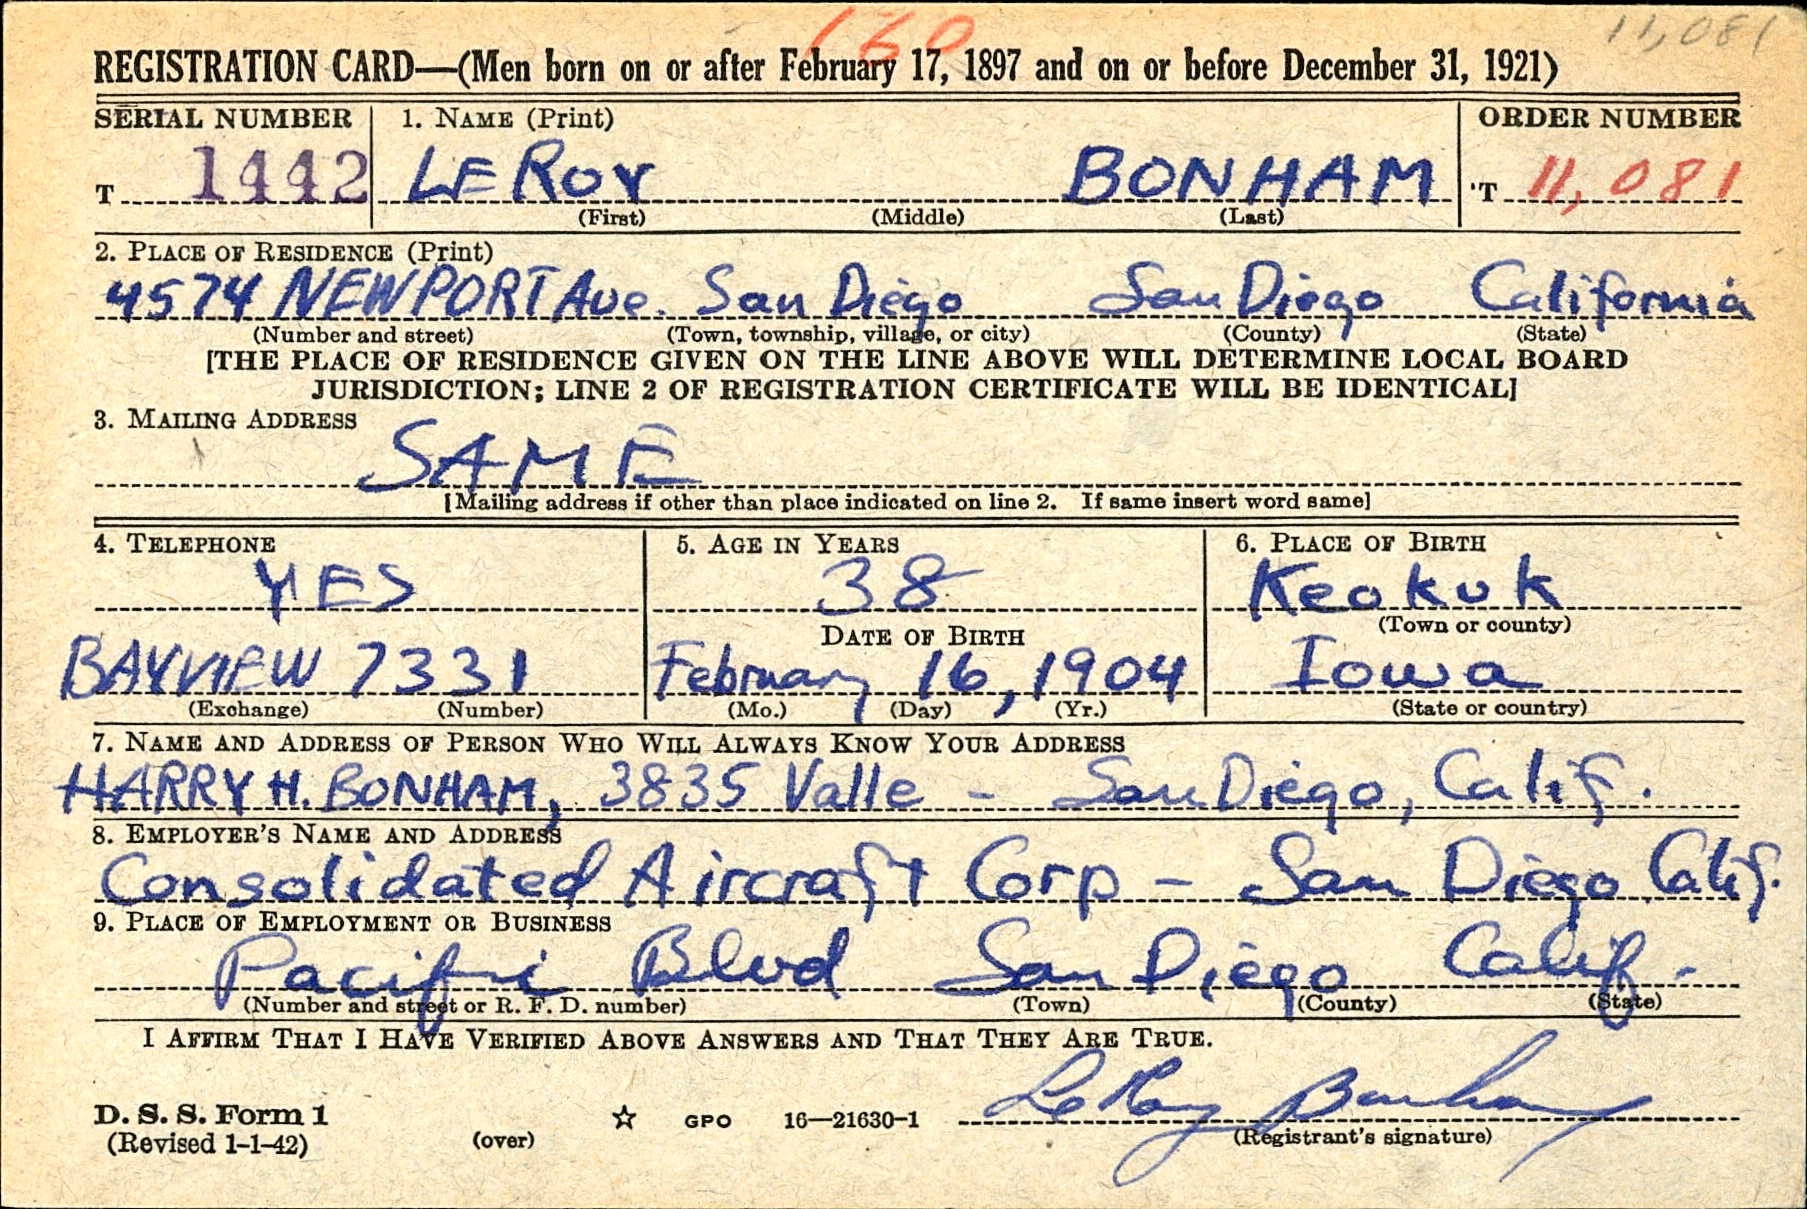 160
11,081
REGISTRATION CARD—(Men born on or after February 17, 1897 and on or before December 31, 1921)
SERIAL NUMBER 1. NAME (Print) ORDER NUMBER
T 1442 LE ROY BONHAM T 11,081
(First) (Middle) (Last)
2. PLACE OF RESIDENCE (Print)
4574 NEWPORT Ave. San Diego San Diego California
(Number and street) (Town, township, village, or city) (County) (State)
[THE PLACE OF RESIDENCE GIVEN ON THE LINE ABOVE WILL DETERMINE LOCAL BOARD
JURISDICTION; LINE 2 OF REGISTRATION CERTIFICATE WILL BE IDENTICAL]
3. MAILING ADDRESS
SAME
[Mailing address if other than place indicated on line 2. If same insert word same]
4. TELEPHONE 5. AGE IN YEARS 6. PLACE OF BIRTH
YES 38 Keokuk
DATE OF BIRTH (Town or county)
BAYVIEW 7331 February 16, 1904 Iowa
(Exchange) (Number) (Mo.) (Day) (Yr.) (State or country)
7. NAME AND ADDRESS OF PERSON WHO WILL ALWAYS KNOW YOUR ADDRESS
HARRY H. BONHAM, 3835 Valle - San Diego, Calif.
8. EMPLOYER'S NAME AND ADDRESS
Consolidated Aircraft Corp - San Diego, Calif.
9. PLACE OF EMPLOYMENT OR BUSINESS
Pacific Blvd San Diego Calif.
(Number and street or R. F. D. number) (Town) (County) (State)
I AFFIRM THAT I HAVE VERIFIED ABOVE ANSWERS AND THAT THEY ARE TRUE.
LeRoy Bonham
D. S. S. Form 1 ☆ GPO 16—21630-1
(Revised 1-1-42) (over) (Registrant's signature)